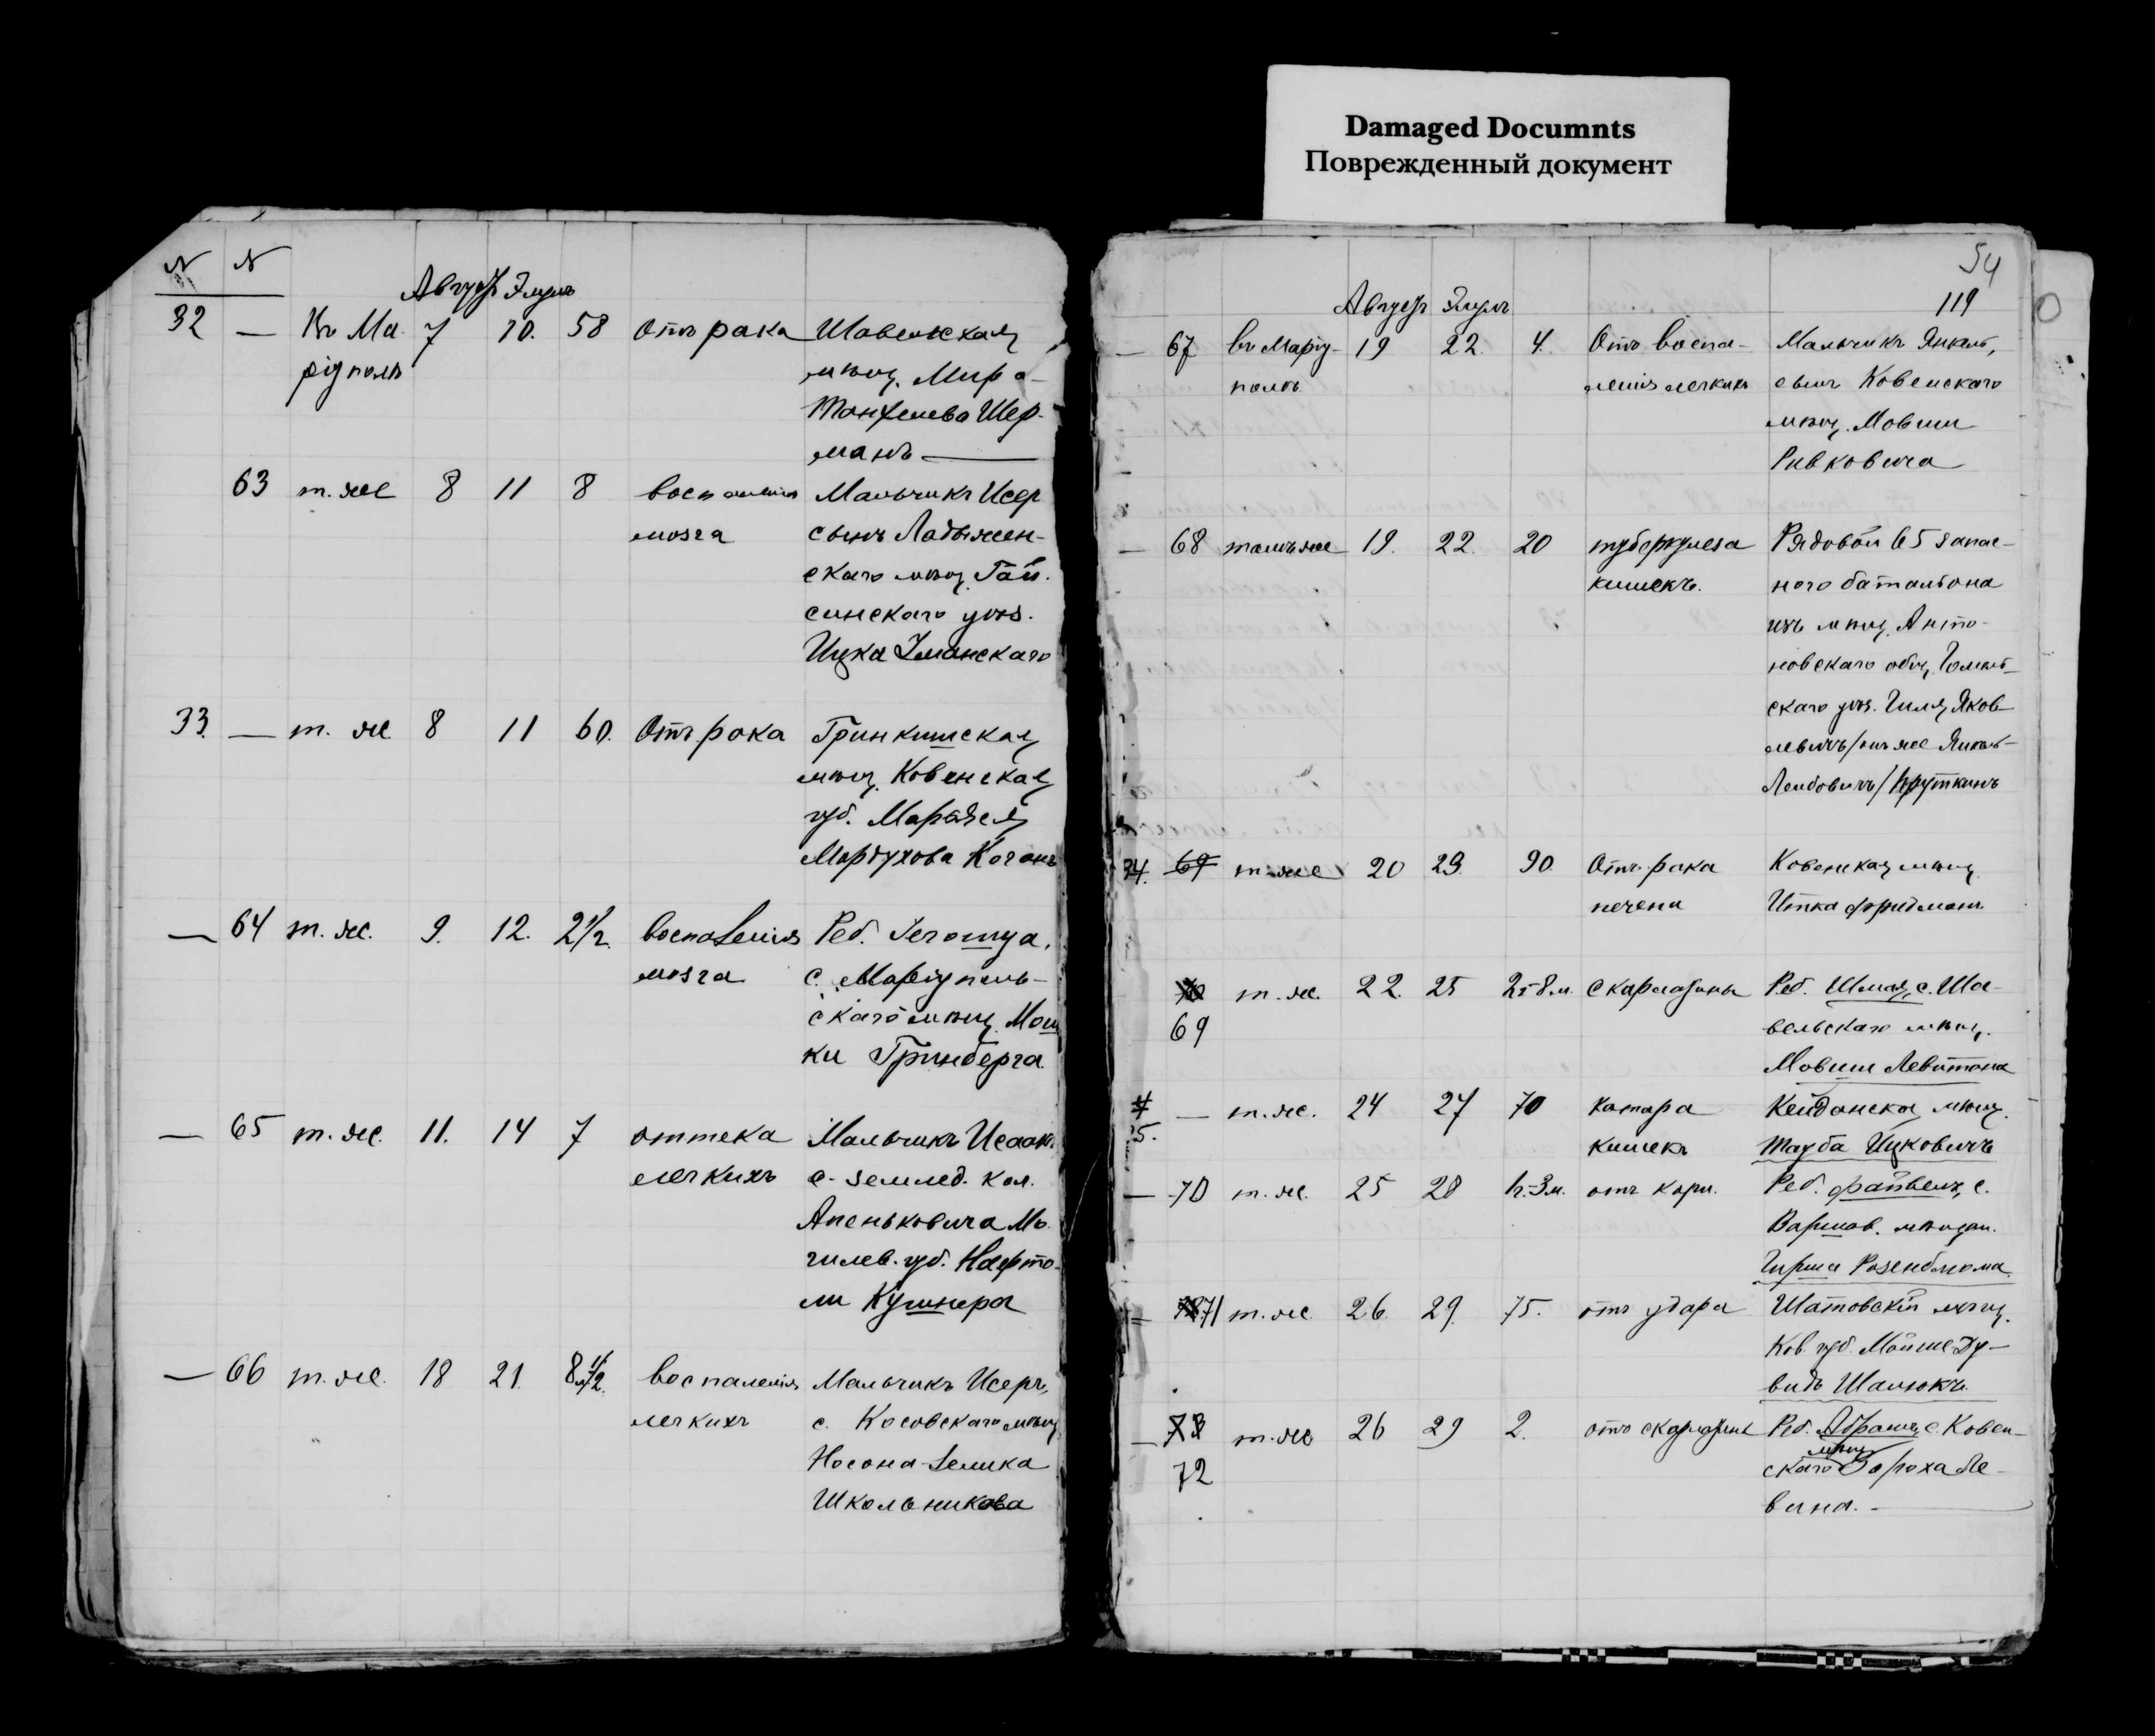 Damaged Documnts
Поврежденный документ
N N
Августъ Элулъ
32 — Въ Ма- 7 10. 58 Отъ рака Шавельская
ріуполѣ мѣщ. Мира
Танхелева Шер-
манъ —
63 т. же 8 11 8 воспаленія Мальчикъ Исер
мозга сынъ Ладыжен-
скаго мѣщ. Гай-
синскаго уѣз.
Ицка Уманскаго
33. — т. же 8 11 60. Отъ рака Гринкишская
мѣщ. Ковенская
губ.
Мордухова Коганъ
— 64 т. же. 9. 12. 2 1/2. воспаленія Реб.
мозга с. Маріуполь-
скаго мѣщ. Мош
ки Гринберга.
— 65 т. же. 11. 14 7 оттека Мальчикъ Исаакъ
легкихъ с. землед. кол.
Апеньковича Мо-
гилев. губ. Нафто-
ли Кушнера
— 66 т. же. 18 21. 8 1/2. воспаленія Мальчикъ Исеръ,
легкихъ с. Косовскаго мѣщ.
Носона-Зелика
Школьникова
54
119
Августъ Элулъ
— 67 въ Маріу- 19 22. 4. Отъ воспа- Мальчикъ Янкель,
полѣ ленія легкихъ сынъ Ковенскаго
мѣщ. Мовши
Ривковича
— 68 тамъ же 19. 22. 20 туберкулеза Рядовой 65 запас-
кишекъ. ного баталіона
изъ мѣщ. Анто-
новскаго общ. Гомель-
скаго уѣз. Гиля Яков-
левичъ/онъ же Янкель-
Лейбовичъ/Пруткинъ
34. 69 т. же 20 23. 90. Отъ рака Ковенская мѣщ.
печени Итка Фридманъ
70 т. же. 22. 25 2г-8м. скарлатины Реб. Шмая, с. Ша-
69 вельскаго мѣщ.
Мовши Левитана
— т. же. 24 27 70 катара Кейданская мѣщ.
5. кишекъ Тауба Ицковичъ
— 70 т. же. 25 28 1г.-3м. отъ кори. Реб. Файвель, с.
Варшав. мѣщан.
Гирша Розенблюма.
71 т. же. 26. 29. 75. отъ удара Шатовскій мѣщ.
Ков. губ. Мойше Ду-
видъ Шалюкъ
— 73 т. же 26 29 2. отъ скарлатины Реб. Абрамъ, с. Ковен-
мѣщ.
72 скаго Бороха Ле-
вина. —